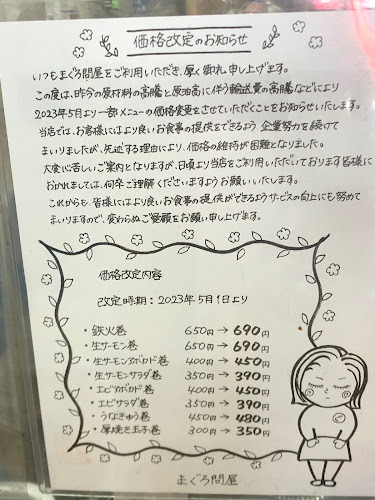 価格改定のお知らせ
いつもまぐろ問屋をご利用いただき、厚く御礼申し上げます。
この度は、昨今の原材料の高騰と原油高に伴う輸送費の高騰などにより
2023年5月より一部メニューの価格変更をさせていただくことをお知らせいたします。
当店では、お客様にはより良いお食事の提供をできるよう企業努力を続けて
まいりましたが、先述する理由により、価格の維持が困難となりました。
大変心苦しいご案内となりますが、日頃より当店をご利用いただいております皆様に
おかれましては、何卒ご理解くださいますようお願いいたします。
これからも、皆様にはより良いお食事の提供ができるようサービスの向上にも努めて
まいりますので、変わらぬご愛顧をお願い申し上げます。
価格改定内容
改定時期：2023年5月1日より
・鉄火巻 650円→690円
・生サーモン巻 650円→690円
・生サーモンアボカド巻 400円→450円
・生サーモンサラダ巻 350円→390円
・エビアボカド巻 400円→450円
・エビサラダ巻 350円→390円
・うなきゅう巻 450円→480円
・厚焼き玉子巻 300円→350円
まぐろ問屋